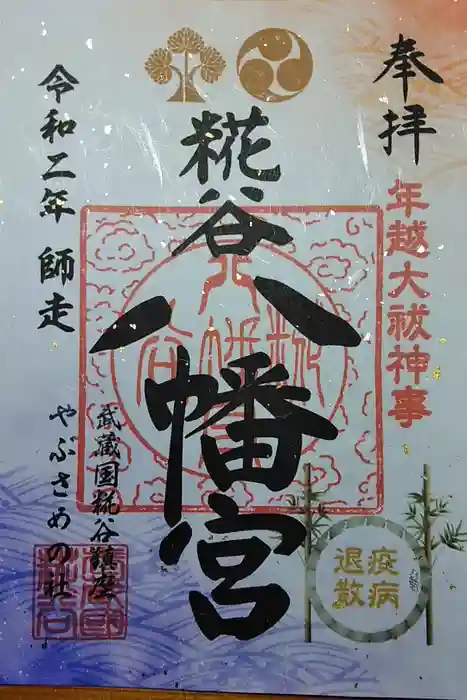 奉拝
年越大祓神事
糀谷八幡宮
疫病
退散
武蔵国糀谷鎮座
やぶさめの社
令和二年 師走